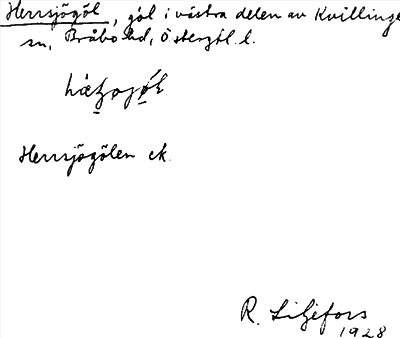 Herrsjögöl, göl i västra delen av Kvillinge
sn, Bråbo hd, Östergtl. l.
Herrsjögölen ek.
R. Liljefors
1928